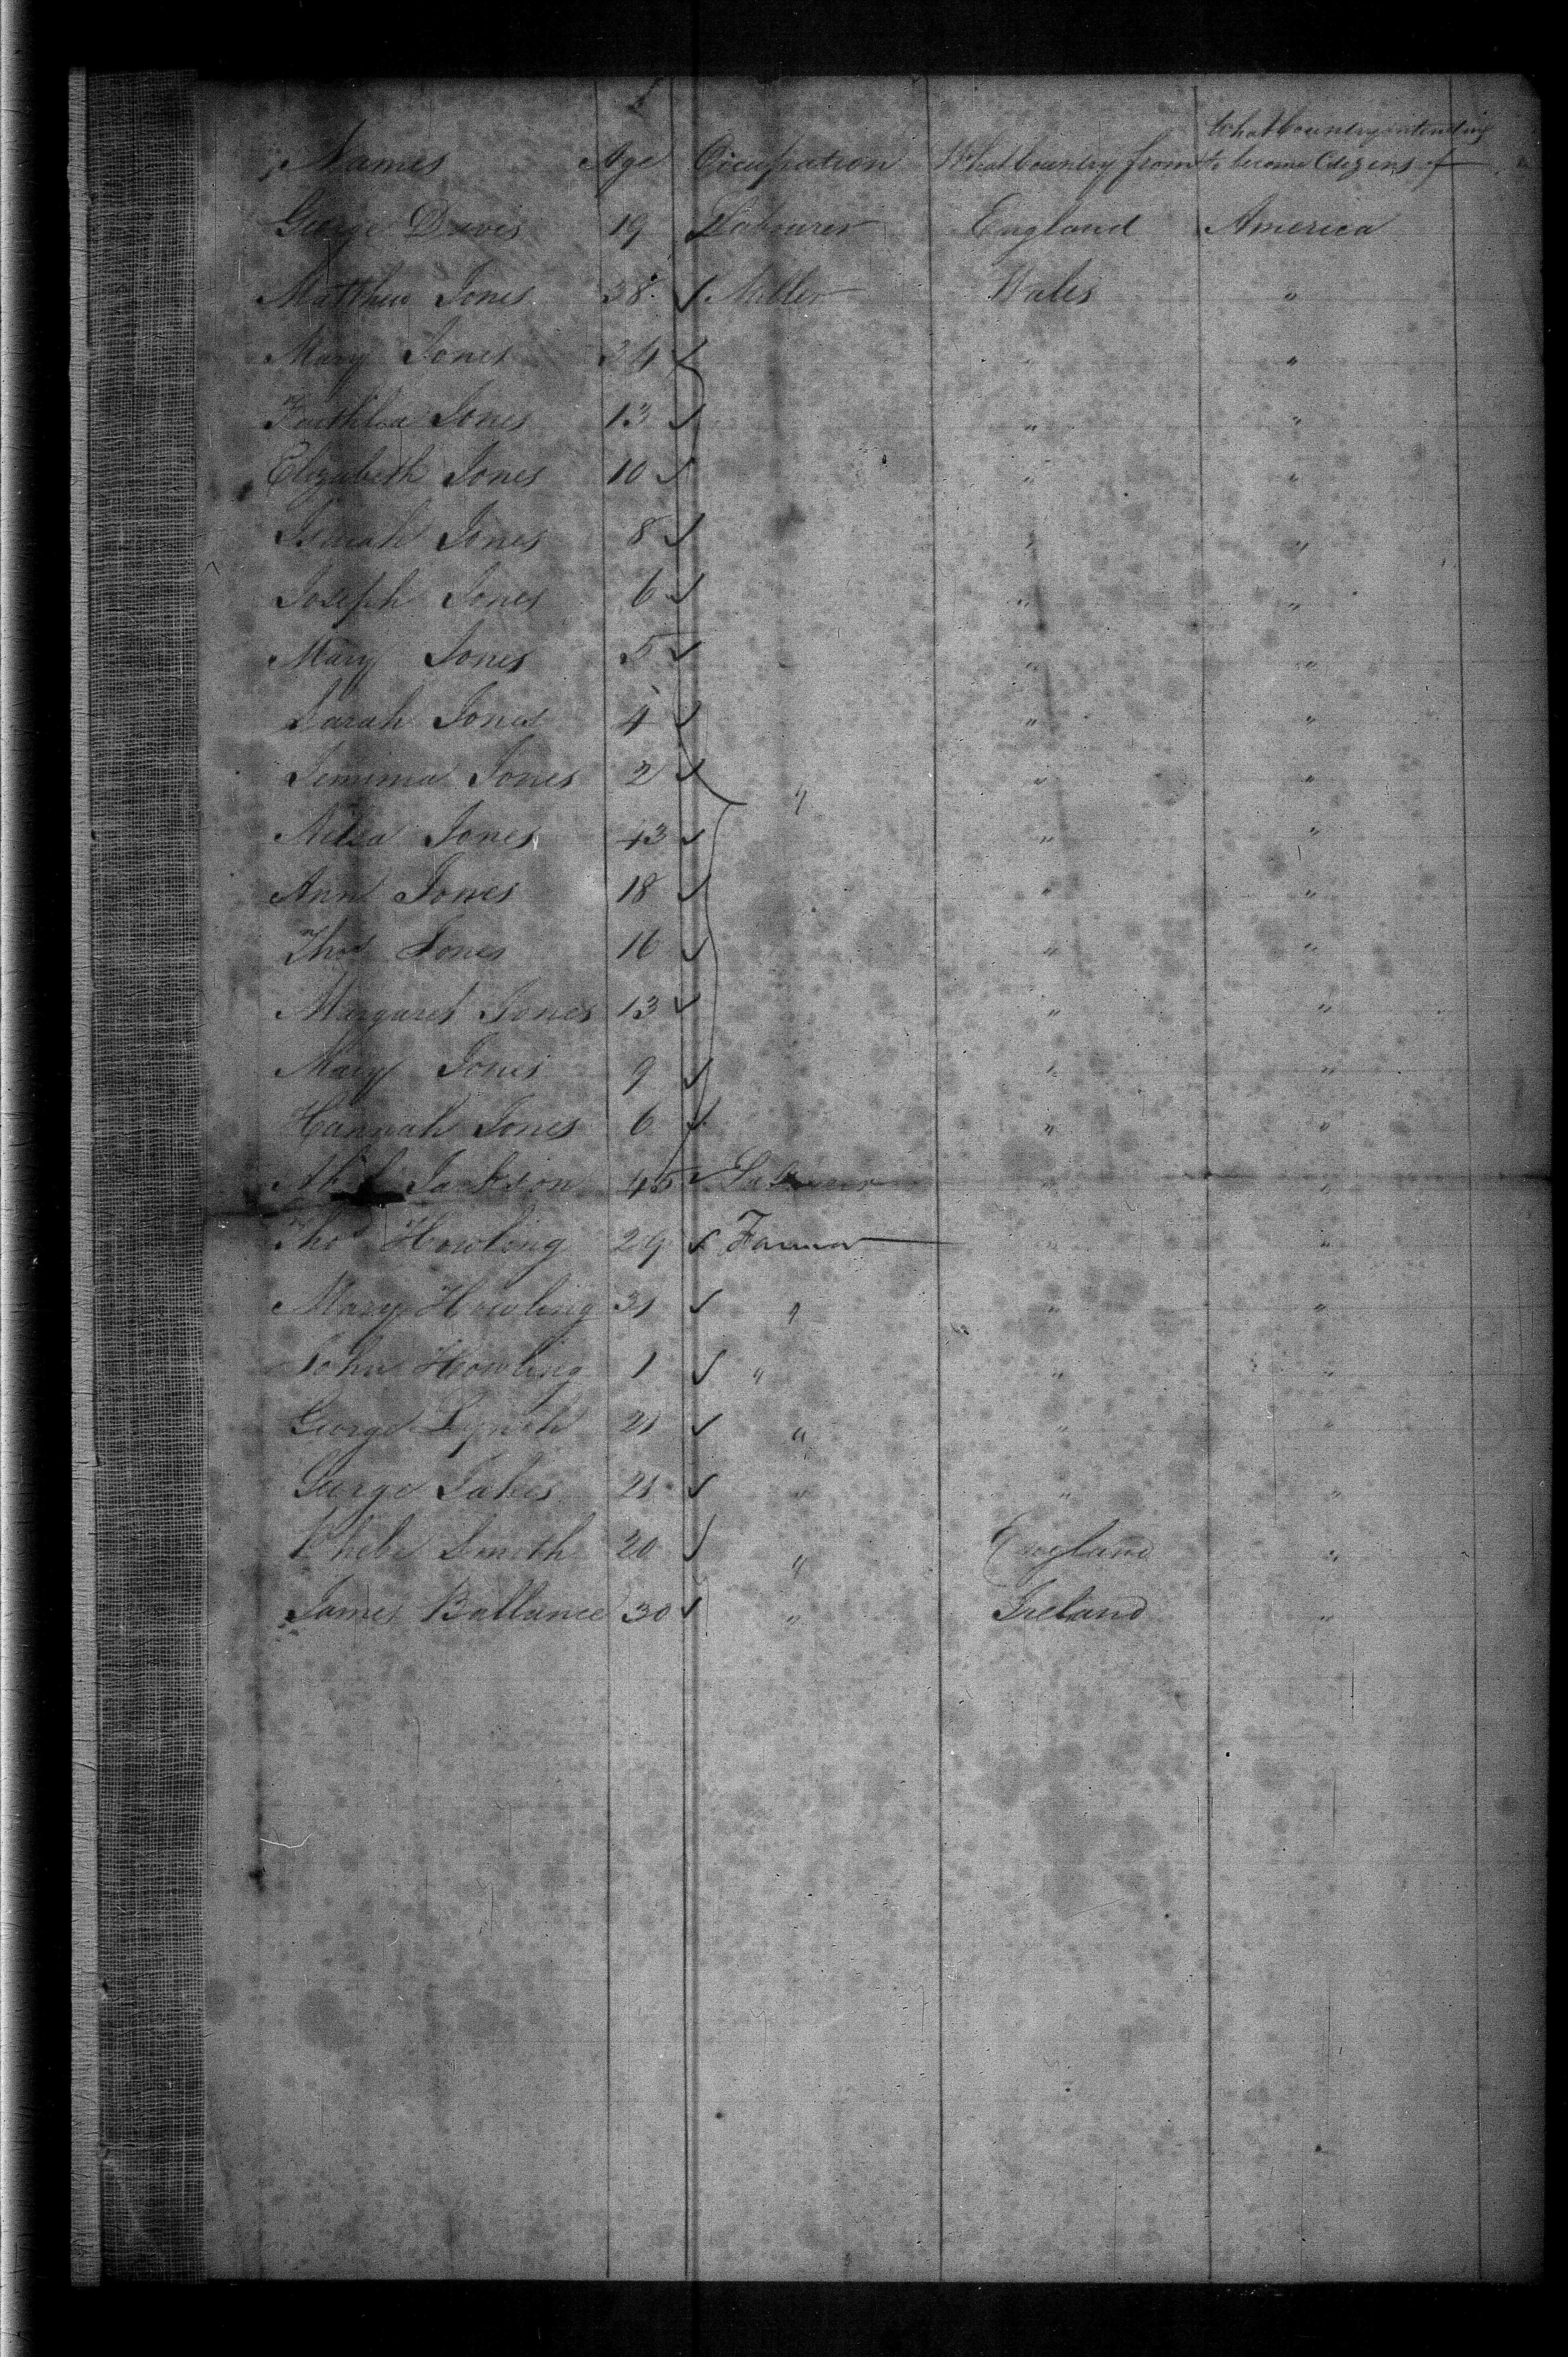 What Country intending
Names Age Occupation What Country from to become Citizens of
George Davis 19 Labourer England America
Matthew Jones 38 ✓ Miller Wales "
Mary Jones 34 ✓ " "
Jones 13 ✓ " "
Elizabeth Jones 10 ✓ " "
Isaiah Jones 8 ✓ " "
Joseph Jones 6 ✓ " "
Mary Jones 5 ✓ " "
Sarah Jones 4 ✓ " "
Jemima Jones 2 ✓ " " "
Jones 43 ✓ " "
Ann Jones 18 ✓ " "
Thos Jones 16 ✓ " "
Margaret Jones 13 ✓ " "
Mary Jones 9 ✓ " "
Hannah Jones 6 ✓ " "
Jackson 45 ✓ " "
Thos Howling 29 ✓ Farmer " "
Mary Howling 31 ✓ " " "
John Howling 1 ✓ " " "
George Lynch 21 ✓ " " "
George 21 ✓ " " "
Phebe Smith 20 ✓ " England "
James Ballance 30 ✓ " Ireland "